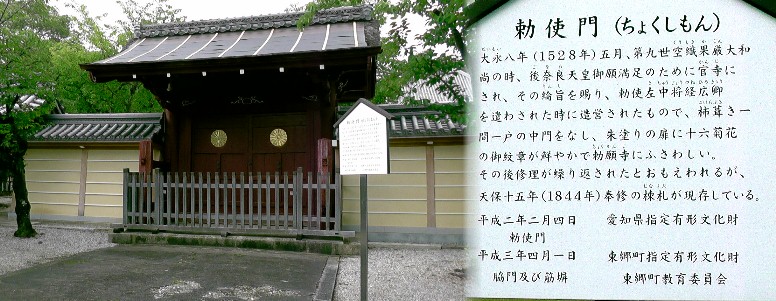 勅使門(ちょくしもん)
大永八年(1528年)五月、第九世空織果厳大和
尚の時、後奈良天皇御願満足のために官寺に
され、その綸旨を賜り、勅使左中将経広卿
を遣わされた時に造営されたもので、柿葺き一
間一戸の中門をなし、朱塗りの扉に十六菊花
の御紋章が鮮やかで勅願寺にふさわしい。
その後修理が繰り返されたとおもえわれるが、
天保十五年(1844年)奉修の棟札が現存している。
平成二年二月四日 愛知県指定有形文化財
勅使門
平成三年四月一日 東郷町指定有形文化財
脇門及び筋塀 東郷町教育委員会